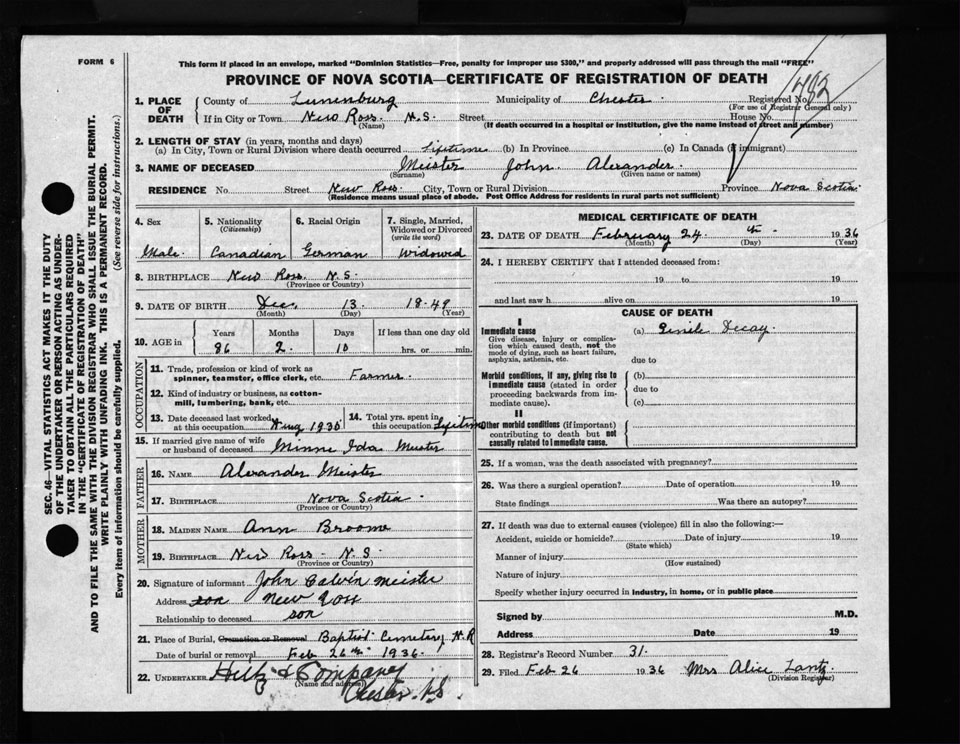 FORM 6
This form if placed in an envelope, marked "Dominion Statistics—Free, penalty for improper use $300," and properly addressed will pass through the mail "FREE"
PROVINCE OF NOVA SCOTIA—CERTIFICATE OF REGISTRATION OF DEATH
SEC. 46—VITAL STATISTICS ACT MAKES IT THE DUTY
OF THE UNDERTAKER OR PERSON ACTING AS UNDER-
TAKER TO OBTAIN ALL THE PARTICULARS REQUIRED
IN THE "CERTIFICATE OF REGISTRATION OF DEATH"
AND TO FILE THE SAME WITH THE DIVISION REGISTRAR WHO SHALL ISSUE THE BURIAL PERMIT.
WRITE PLAINLY WITH UNFADING INK. THIS IS A PERMANENT RECORD.
Every item of information should be carefully supplied. (See reverse side for instructions.)
1. PLACE OF DEATH
County of Lunenburg Municipality of Chester Registered No. 482
(For use of Registrar General only)
If in City or Town New Ross. N.S. Street House No.
(Name) (If death occurred in a hospital or institution, give the name instead of street and number)
2. LENGTH OF STAY (in years, months and days)
(a) In City, Town or Rural Division where death occurred Lifetime (b) In Province (c) In Canada (if immigrant)
3. NAME OF DECEASED Meister John Alexander.
(Surname) (Given name or names)
RESIDENCE No. Street New Ross. City, Town or Rural Division Province Nova Scotia
(Residence means usual place of abode. Post Office Address for residents in rural parts not sufficient)
4. Sex
Male.
5. Nationality
(Citizenship)
Canadian
6. Racial Origin
German
7. Single, Married,
Widowed or Divorced
(write the word)
Widowed
8. BIRTHPLACE New Ross. N.S.
(Province or Country)
9. DATE OF BIRTH Dec. 13. 1849
(Month) (Day) (Year)
10. AGE in
Years Months Days If less than one day old
86 2. 10 hrs. or min.
OCCUPATION
11. Trade, profession or kind of work as
spinner, teamster, office clerk, etc. Farmer.
12. Kind of industry or business, as cotton-
mill, lumbering, bank, etc.
13. Date deceased last worked
at this occupation Aug 1930
14. Total yrs. spent in
this occupation Lifetime
15. If married give name of wife
or husband of deceased Minnie Ida Meister
FATHER
16. NAME Alexander Meister
17. BIRTHPLACE Nova Scotia.
(Province or Country)
MOTHER
18. MAIDEN NAME Ann Broome
19. BIRTHPLACE New Ross - N.S.
(Province or Country)
20. Signature of informant John Calvin Meister
Address son New Ross
Relationship to deceased son
21. Place of Burial, Cremation or Removal Baptist Cemetery N.R
Date of burial or removal Feb 26th 1936.
22. UNDERTAKER Hiltz & Company
(Name and address) Chester. N.S.
MEDICAL CERTIFICATE OF DEATH
23. DATE OF DEATH February 24 th 1936
(Month) (Day) (Year)
24. I HEREBY CERTIFY that I attended deceased from:
19 to 19
and last saw h alive on 19
CAUSE OF DEATH
I
Immediate cause
Give disease, injury or complica-
tion which caused death, not the
mode of dying, such as heart failure,
asphyxia, asthenia, etc.
(a) Senile Decay
due to
Morbid conditions, if any, giving rise to
immediate cause (stated in order
proceeding backwards from im-
mediate cause).
(b)
due to
(c)
II
Other morbid conditions (if important)
contributing to death but not
causally related to immediate cause.
25. If a woman, was the death associated with pregnancy?
26. Was there a surgical operation? Date of operation 19
State findings Was there an autopsy?
27. If death was due to external causes (violence) fill in also the following:—
Accident, suicide or homicide? Date of injury 19
(State which)
Manner of injury
(How sustained)
Nature of injury
Specify whether injury occurred in industry, in home, or in public place
Signed by M.D.
Address Date 19
28. Registrar's Record Number 31.
29. Filed Feb 26 1936 Mrs Alice Lantz
(Division Registrar)